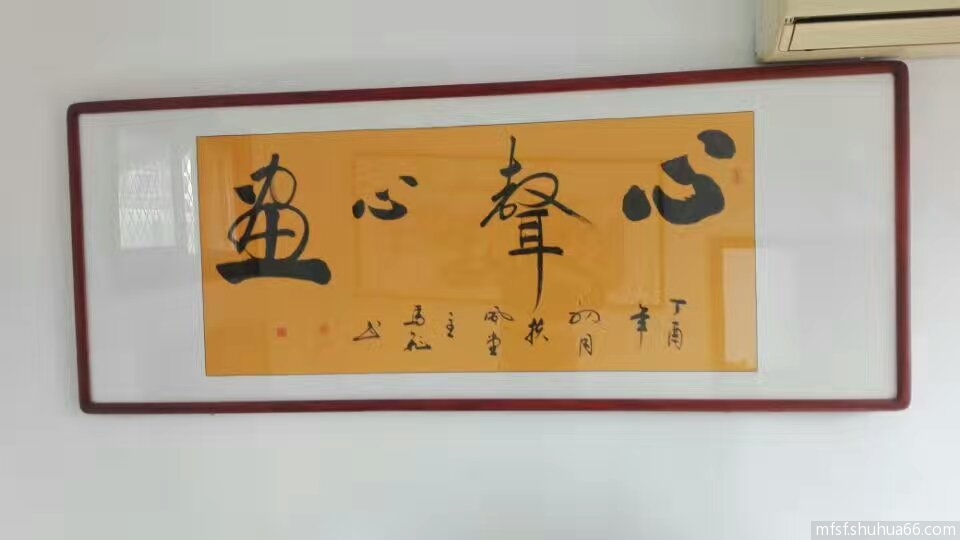 心聲心畫
丁酉年四月扶風堂主馬飛書
mfsf.shuhua66.com